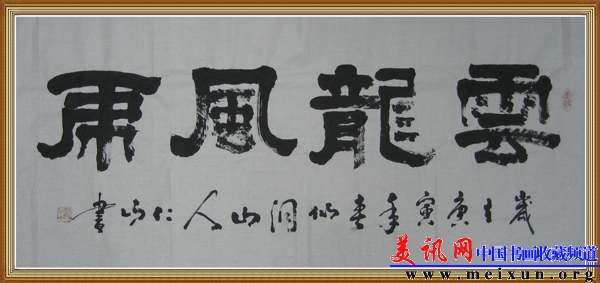 雲龍風虎
歲在庚寅年春仙洞山人仁書
美讯网 中国书画收藏频道
www.meixun.org